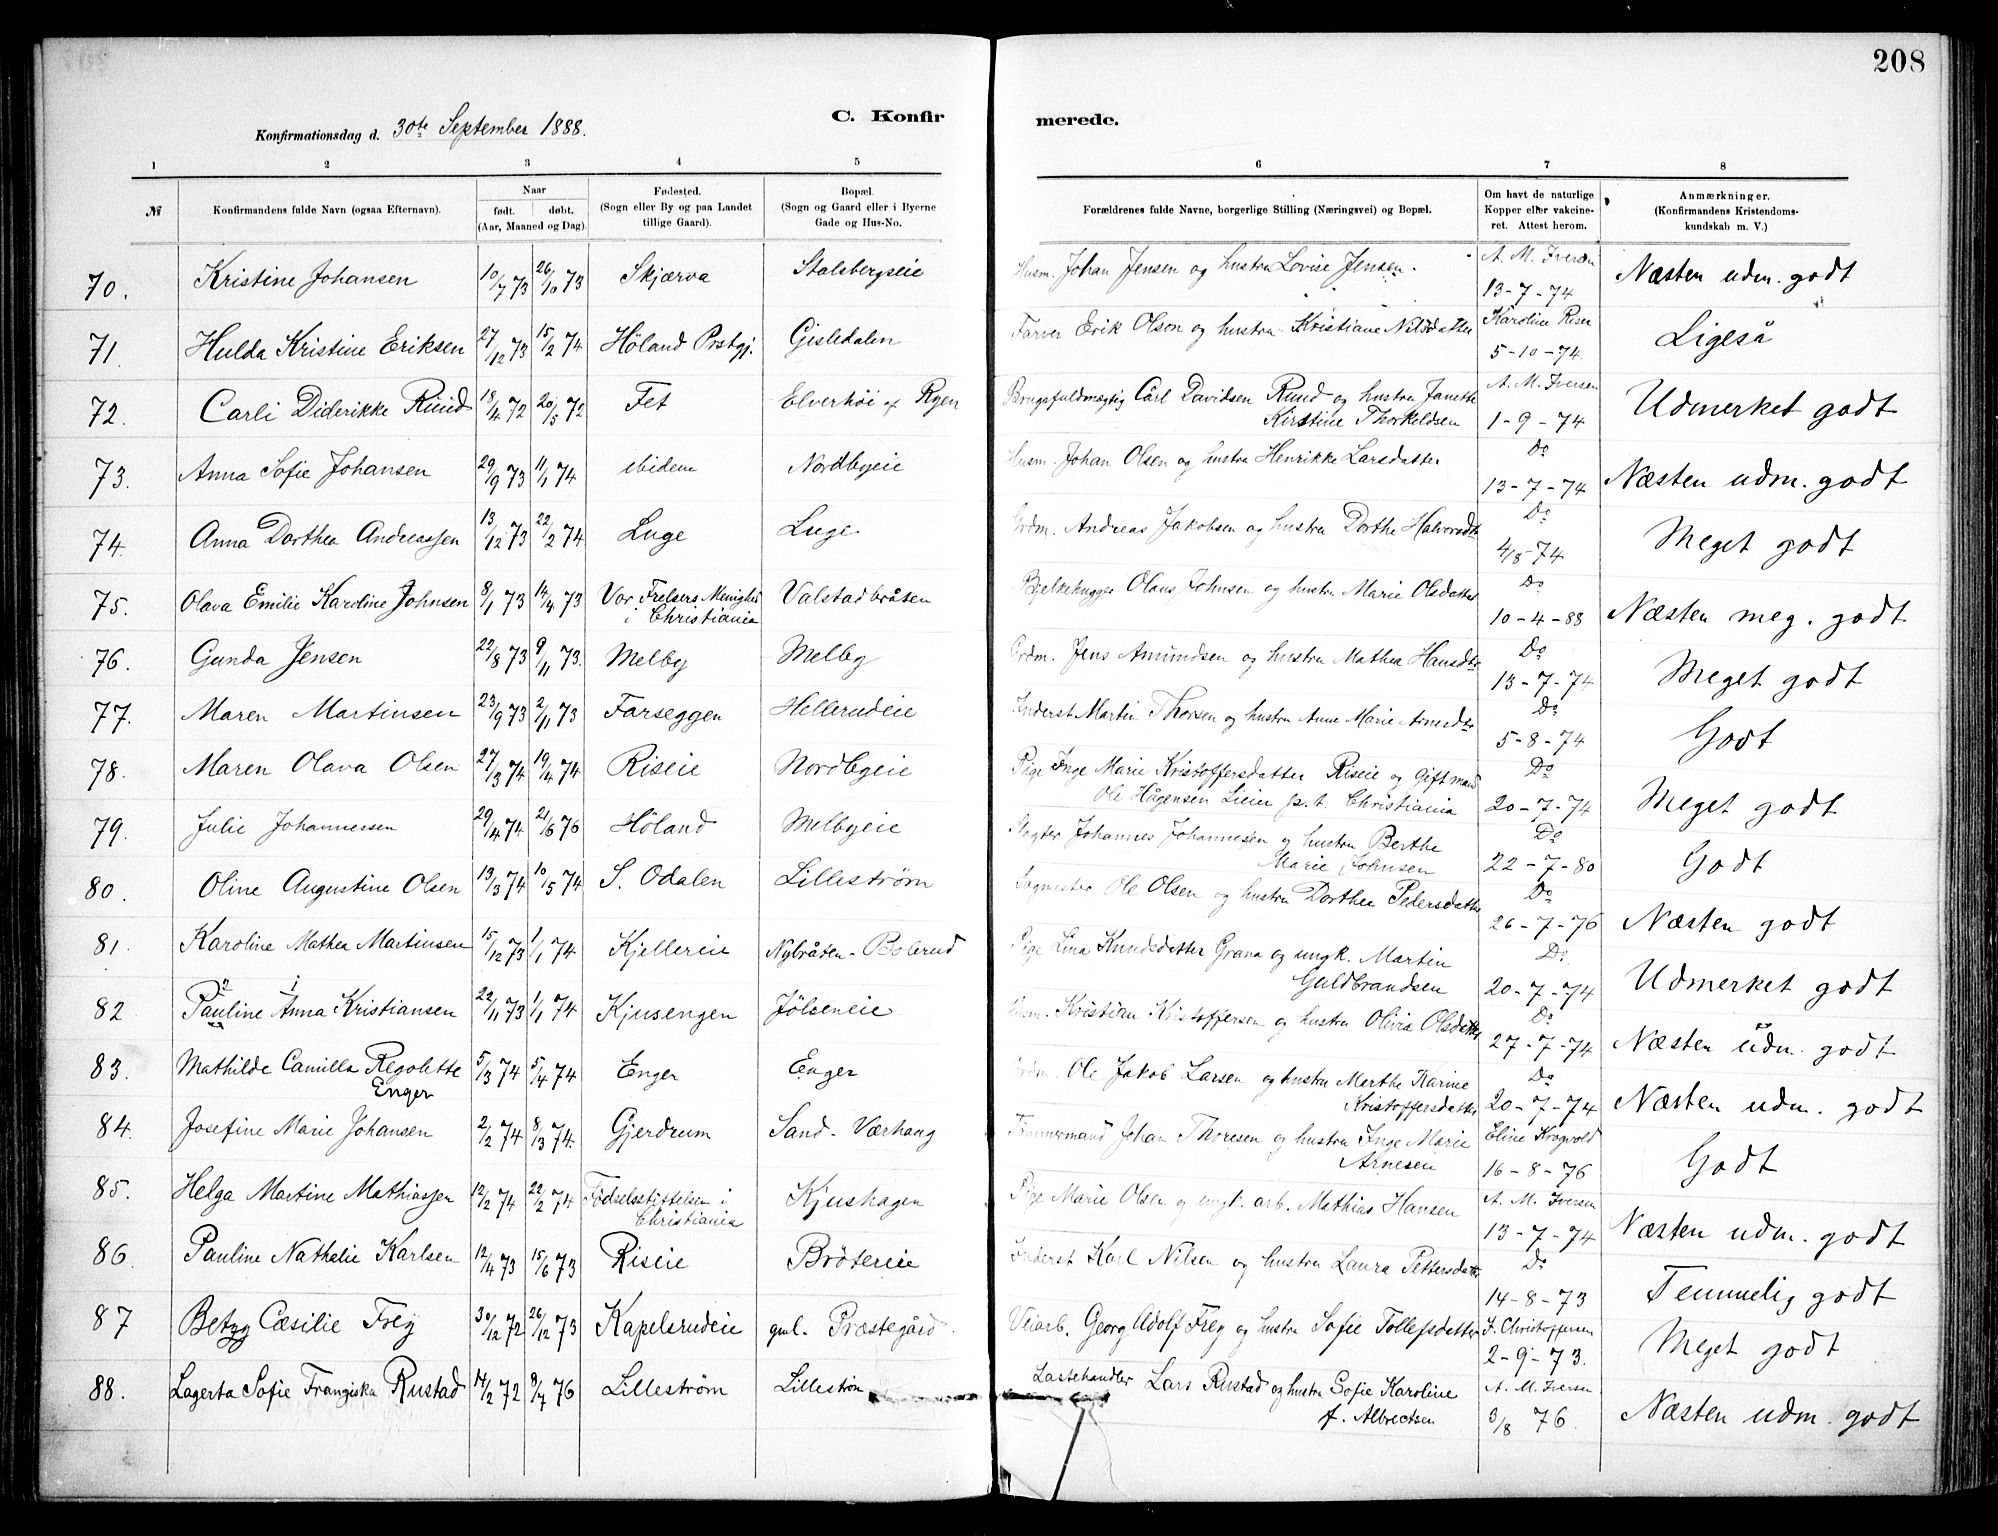 208
Konfirmationsdag d. 30te September 1888.
C. Konfirmerede.
1 2 3 4 5 6 7 8
№ Konfirmandens fulde Navn (ogsaa Efternavn). Naar født. døbt. (Aar, Maaned og Dag). Fødested. (Sogn eller By og paa Landet tillige Gaard). Bopæl. (Sogn og Gaard eller i Byerne Gade og Hus-No. Forældrenes fulde Navne, borgerlige Stilling (Næringsvei) og Bopæl. Om havt de naturlige Kopper eller vakcineret. Attest herom. Anmærkninger. (Konfirmandens Kristendomskundskab m. V.)
70. Kristine Johansen 10/7 73 26/10 73 Skjærva Stalsbergseie Husm. Johan Jensen og hustru Lovise Jensen. A. M. Iversen 13-7-74 Næsten udm. godt
71. Hulda Kristine Eriksen 27/12 73 15/2 74 Höland Prstgj. Gisledalen Farver Erik Olsen og hustru Kristiane Nilsdatter Karoline Riser 5-10-74. Ligeså
72. Carli Diderikke Ruud 18/4 72 20/5 72 Fet Elverhöi af Ryen Brugsfuldmægtig Carl Davidsen Ruud og hustru Janette
Kirstine Thorkeldsen A. M. Iversen 1-9-74 Udmerket godt
73. Anna Sofie Johansen 29/9 73 11/1 74 ibidem Nordbyeie Husm. Johan Olsen og hustru Henrikke Larsdatter Do 13-7-74 Næsten udm. godt
74. Anna Dorthea Andreassen 13/12 73 22/2 74 Luge Luge Grdm. Andreas Jakobsen og hustru Dorthe Halvorsdtr Do 4/8-74 Meget godt
75. Olava Emilie Karoline Johnsen 8/1 73 14/4 73 Vor Frelsers Menighed
i Christiania Valstadbråten Bjelkehugger Olaus Johnsen og hustru Marie Olsdatter Do 10-4-88 Næsten meg. godt
76. Gunda Jensen 22/8 73 9/11 73. Melby Melby Grdm. Jens Amundsen og hustru Mathea Hansdtr Do 13-7-74 Meget godt
77. Maren Martinsen 23/9 73 2/11 73 Farseggen Hellerudeie Inderst Martin Thorsen og hustru Anne Marie Arnesdtr Do 5-8-74 Godt
78. Maren Olava Olsen 27/3 74 19/4 74 Riseie Nordbyeie Pige Inge Marie Kristoffersdatter Riseie og gift mand
Ole Hågensen Lieier p.t. Christiania Do 20-7-74 Meget godt
79. Julie Johannessen 29/4 74 21/6 76 Höland Melbyeie Røgter Johannes Johannesen og hustru Berthe
Marie Johnsen Do 22-7-80 Godt
80. Oline Augustine Olsen 13/3 74 10/5 74 S. Odalen Lilleström Sagmester Ole Olsen og hustru Dorthea Pedersdatter Do 26-7-76 Næsten godt
81. Karoline Mathea Martinsen 15/12 73 1/1 74 Kjellereie Nybråten-Bolerud Pige Lina Knudsdatter Grana og ungk. Martin
Guldbrandsen Do 20-7-74 Udmerket godt
82 Pauline Anna Kristiansen 22/11 73 1/1 74 Kjusengen Jölseneie Husm. Kristian Kristoffersen og hustru Olivia Olsdatter Do 27-7-74 Næsten udm. godt
83. Mathilde Camilla Regolette
Enger 5/3 74 5/4 74 Enger Enger Grdm. Ole Jakob Larsen og hustru Merthe Karine
Kristoffersdatter Do 20-7-74 Næsten udm. godt
84. Josefine Marie Johansen 2/2 74 8/13 74. Gjerdrum Sand-Værhaug Tömmermand Johan Thoresen og hustru Inge Marie
Arnesen Eline Krogvold 16-8-76 Godt
85. Helga Martine Mathiassen 12/2 74 22/2 74 Födselsstiftelsen i
Christiania Kjushagen Pige Marie Olsen og ungk. arb. Mathias Hansen A. M. Iversen 13-7-74 Næsten udm. godt
86. Pauline Nathalie Karlsen 12/4 73 15/6 73 Riseie Brötereie Inderst Karl Nilsen og hustru Laura Pettersdatter Do 14-8-73 Temmelig godt
87 Betzy Cæsilie Frey 30/12 72 26/12 73 Kapelsrudeie gml. Præstegård Veiarb. Georg Adolf Frey og hustru Sofie Tollefsdatter F. Christoffersen 2-9-73. Meget godt
88. Lagerta Sofie Franziska Rustad 14/2 72 9/7 76 Lilleström Lilleströ Lastehandler Lars Rustad og hustru Sofie Karoline
f. Albrectsen A. M. Iversen 3/8 76. Næsten udm. godt